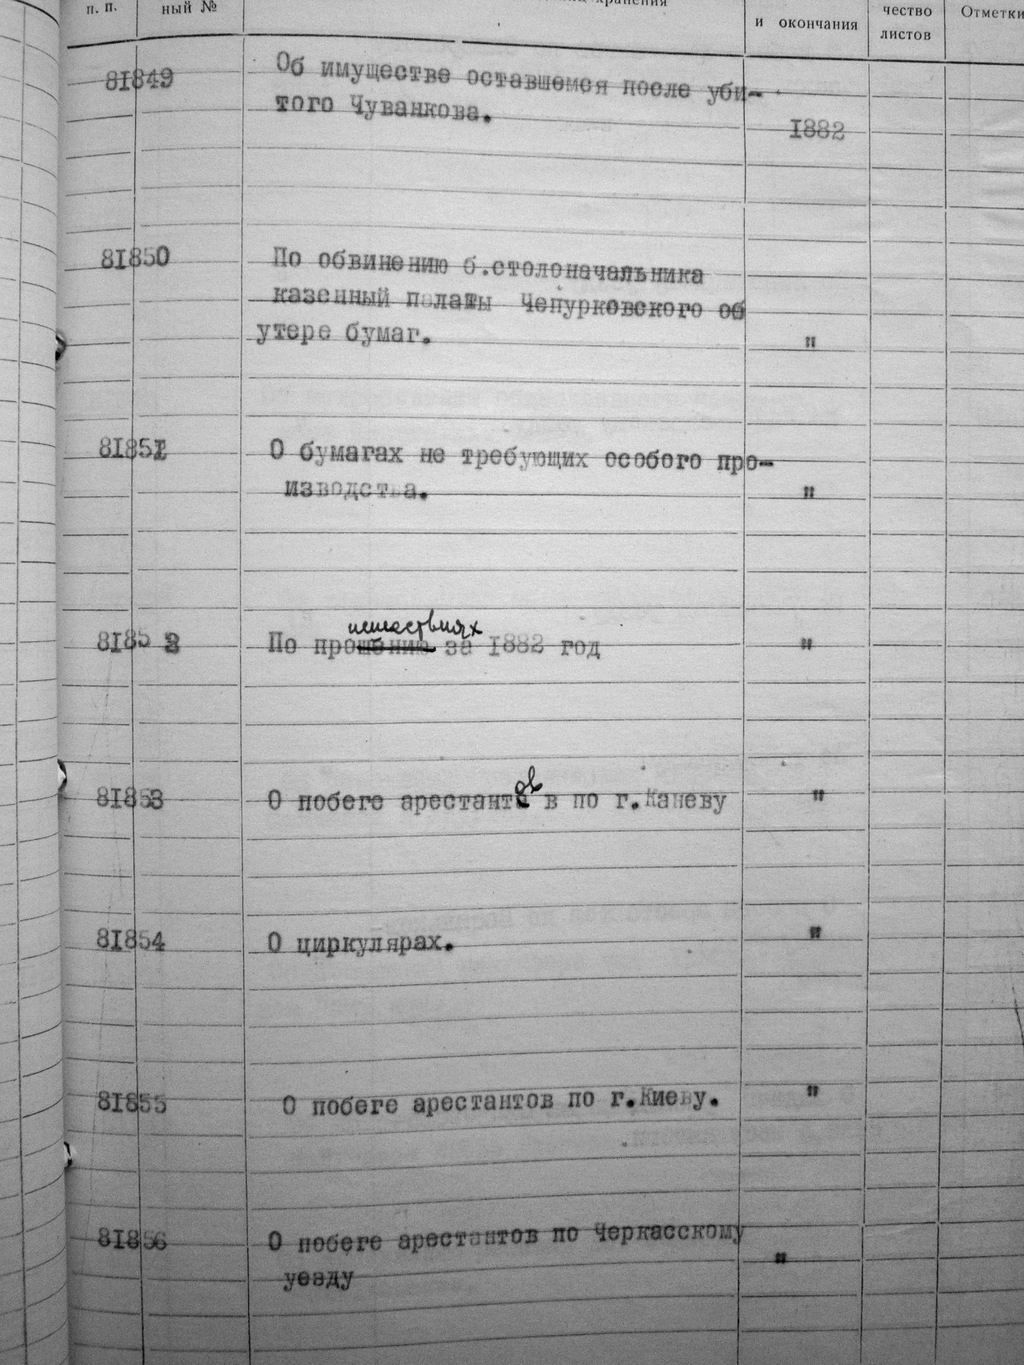 п. п. ный № хранения и окончания чество листов Отметки
81849 Об имуществе оставшемся после уби-
того Чуванкова. 1882
81850 По обвинению б.столоначальника
казенный палаты Чепурковского об
утере бумаг. "
81851 О бумагах не требующих особого про-
изводства. "
исшествиях
81852 По прошение за 1882 год "
ов
81853 О побеге арестанта в по г.Каневу "
81854 О циркулярах. "
81855 О побеге арестантов по г.Киеву. "
81856 О побеге арестантов по Черкасскому
уезду "